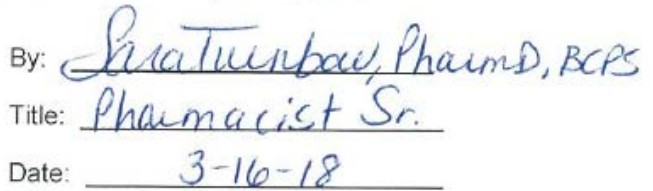 By: Sara Turnbow, PharmD, BCPS
Title: Pharmacist Sr.
Date: 3-16-18